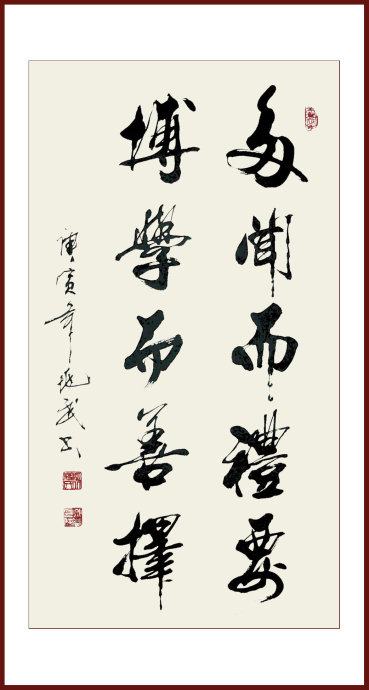 多聞而禮要
博學而善擇
庚寅年